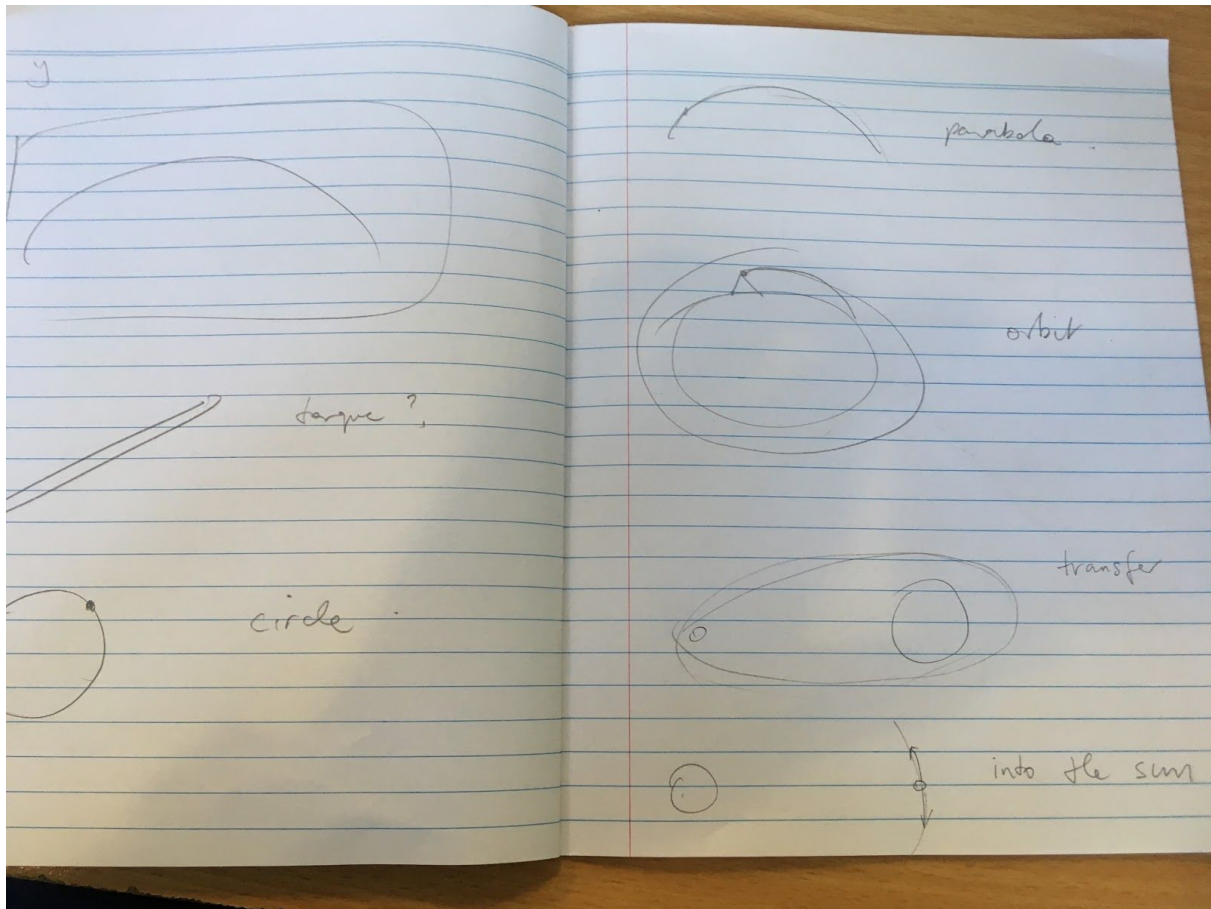 y
torque?
circle.
parabola.
orbit
transfer
into the sun